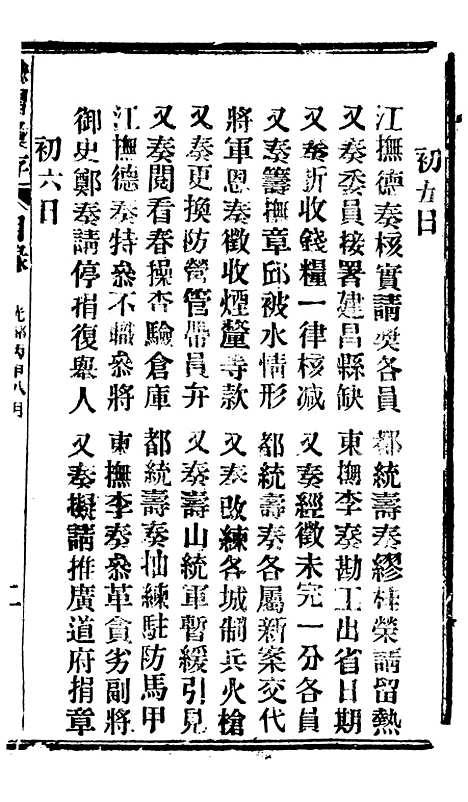 初五日
江撫德奏核實請奬各員
都統壽奏繆桂榮請留熱
又奏委員接署建昌縣缺
東撫李奏勘工出省日期
又奏折收錢糧一律核減
又奏經徵未完一分各員
又奏籌撫章邱被水情形
都統壽奏各屬新案交代
將軍恩奏徵收煙釐等款
又奏改練各城制兵火槍
又奏更換防營管帶員弁
又奏壽山統軍暫緩引見
又奏閱看春操查驗倉庫
都統壽奏抽練駐防馬甲
江撫德奏特叅不職叅將
東撫李奏叅革貪劣副將
御史鄭奏請停捐復舉人
又奏擬請推廣道府捐章
初六日
目錄
光緒丙申八月
二